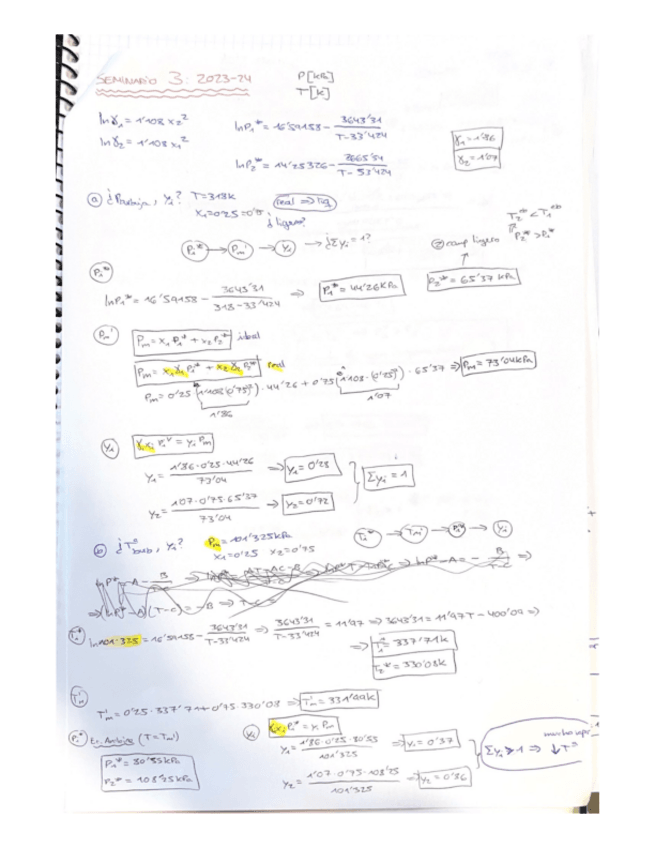 SEMINARIO 3: 2023-24
P[kPa]
T[K]
lnγ₁ = 1'108 x₂²
lnγ₂ = 1'108 x₁²
lnP₁* = 16'59158 - 3643'31 / T-33'424
lnP₂* = 14'25326 - 2665'54 / T-53'424
γ₁ = 1'86
γ₂ = 1'07
a) ¿Pburbuja, y₁? T=318K
x₁=0'25
real ⇒ liq
¿ligero?
P₁* → Pm' → y₁ → ¿Σyᵢ = 1?
② comp ligero
T₂* < T₁*
P₂* > P₁*
P₁*
lnP₁* = 16'59158 - 3643'31 / 318-33'424 ⇒ P₁* = 44'26 kPa
P₂* = 65'37 kPa
Pm'
Pm = x₁P₁* + x₂P₂* ideal
Pm = x₁γ₁P₁* + x₂γ₂P₂* real
Pm = 0'25 (1'108·(0'75)²)·44'26 + 0'75 (1'108·(0'25)²)·65'37 ⇒ Pm = 73'04 kPa
1'86
1'07
y₁
γᵢxᵢPᵢ* = yᵢPm
y₁ = 1'86·0'25·44'26 / 73'04 ⇒ y₁ = 0'28
y₂ = 1'07·0'75·65'37 / 73'04 ⇒ y₂ = 0'72
Σyᵢ = 1
b) ¿Tbub, y₁? Pm = 101'325 kPa
x₁=0'25 x₂=0'75
Tᵢ* → Tm' → Pᵢ* → yᵢ
T₁*
ln 101'325 = 16'59158 - 3643'31 / T-33'424 ⇒ 3643'31 / T-33'424 = 11'97 ⇒ 3643'31 = 11'97T - 400'09 ⇒
⇒ T₁* = 337'71k
T₂* = 330'08k
Tm'
Tm' = 0'25·337'71 + 0'75·330'08 ⇒ Tm' = 331'99k
Pᵢ* Ec. Antoine (T=Tm')
P₁* = 80'55 kPa
P₂* = 108'25 kPa
yᵢ
γᵢxᵢPᵢ* = yᵢPm
y₁ = 1'86·0'25·80'55 / 101'325 ⇒ y₁ = 0'37
y₂ = 1'07·0'75·108'25 / 101'325 ⇒ y₂ = 0'86
Σyᵢ > 1 ⇒ ↓Tª